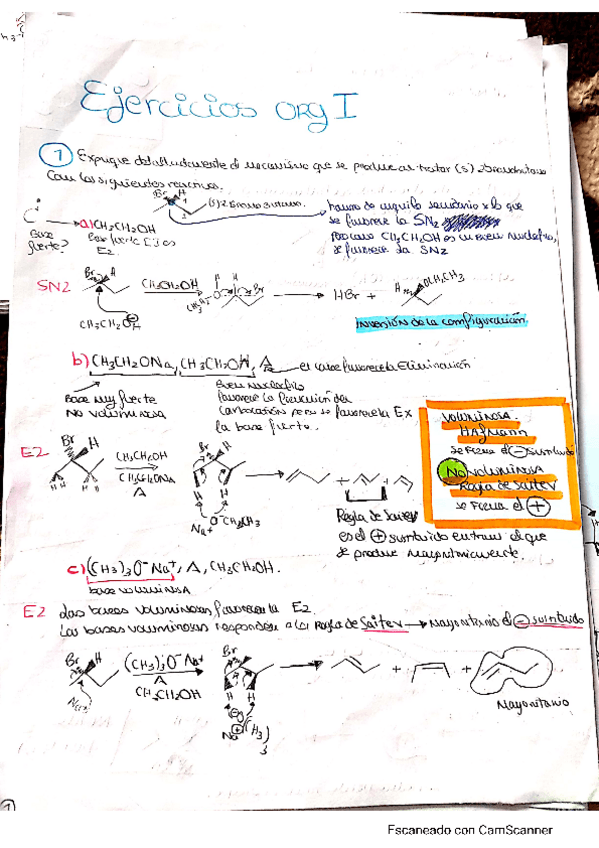 Ejercicios ORG I
1 Explique detalladamente el mecanismo que se produce al tratar (S) 2-Bromobutano
con los siguientes reactivos.
Br H
(S) 2-Bromo butano.
haluro de alquilo secundario x lo que
se favorece la SN2
CH3CH2OH es un buen nucleófilo,
se favorece la SN2
a) CH3CH2OH
Base fuerte?
Base fuerte
E2.
SN2
Br H
CH3CH2OH
Br
HBr +
H OCH2CH3
CH3CH2OH
inversión de la configuración
b) CH3CH2ONa, CH3CH2OH, Δ
el calor favorece la Eliminación
Base muy fuerte
NO VOLUMINOSA
Buen nucleófilo
favorece la formación del
carbocatión pero se favorece la Ex
la base fuerte.
VOLUMINOSA.
HAFmann
se forma el - sustituido
NO VOLUMINOSA
Regla de Saitev
se forma el +
E2
Br H
CH3CH2OH
CH3CH2ONa
Δ
Br H
H H
Na+ O-CH2CH3
+ +
Regla de Saitev
es el + sustituido entran el que
se produce mayoritariamente.
c) (CH3)3O-Na+, Δ, CH3CH2OH.
base voluminosa
E2 Las bases voluminosas favorecen la E2.
Las bases voluminosas responden a la Regla de Saitev → Mayoritario el - sustituido
Br H
(CH3)3O-Na+
Δ
CH3CH2OH
Br H
H H
+ +
Mayoritario
Na+
(CH3)3
1
Escaneado con CamScanner